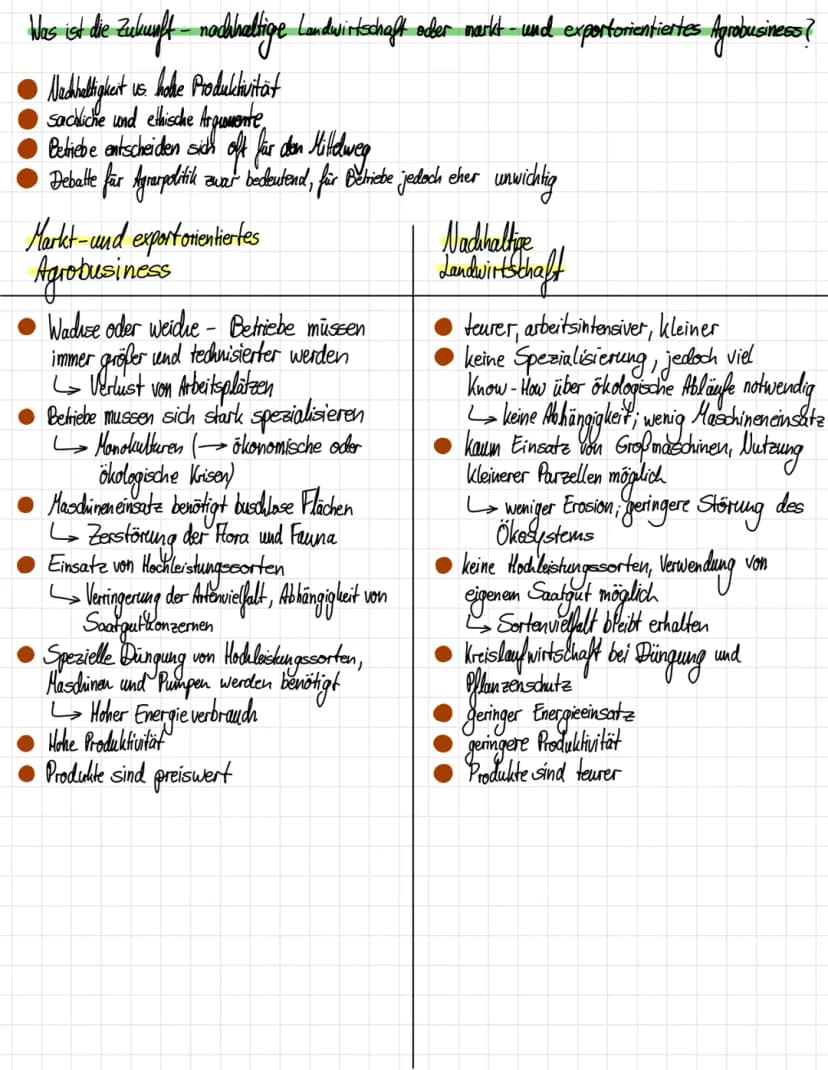 Was ist die Zukunft – nachhaltige Landwirtschaft oder markt- und exportorientiertes Agrobusiness?
Nachhaltigkeit vs. hohe Produktivität
sachliche und ethische Argumente
Betriebe entscheiden sich oft für den Mittelweg
Debatte für Agrarpolitik zwar bedeutend, für Betriebe jedoch eher unwichtig
Markt- und exportorientiertes
Agrobusiness
Wachse oder weiche – Betriebe müssen
immer größer und technisierter werden
↳ Verlust von Arbeitsplätzen
Betriebe mussen sich stark spezialisieren
↳ Monokulturen (→ ökonomische oder
ökologische Krisen)
Maschineneinsatz benötigt buschlose Flächen
↳ Zerstörung der Flora und Fauna
Einsatz von Hochleistungssorten
↳ Verringerung der Artenvielfalt, Abhängigkeit von
Saatgutkonzernen
Spezielle Düngung von Hochleistungssorten,
Maschinen und Pumpen werden benötigt
↳ Hoher Energieverbrauch
Hohe Produktivität
Produkte sind preiswert
Nachhaltige
Landwirtschaft
teurer, arbeitsintensiver, kleiner
keine Spezialisierung, jedoch viel
Know-How über ökologische Abläufe notwendig
↳ keine Abhängigkeit; wenig Maschineneinsatz
kaum Einsatz von Großmaschinen, Nutzung
kleinerer Parzellen möglich
↳ weniger Erosion; geringere Störung des
Ökosystems
keine Hochleistungssorten, Verwendung von
eigenem Saatgut möglich
↳ Sortenvielfalt bleibt erhalten
Kreislaufwirtschaft bei Düngung und
Pflanzenschutz
geringer Energieeinsatz
geringere Produktivität
Produkte sind teurer